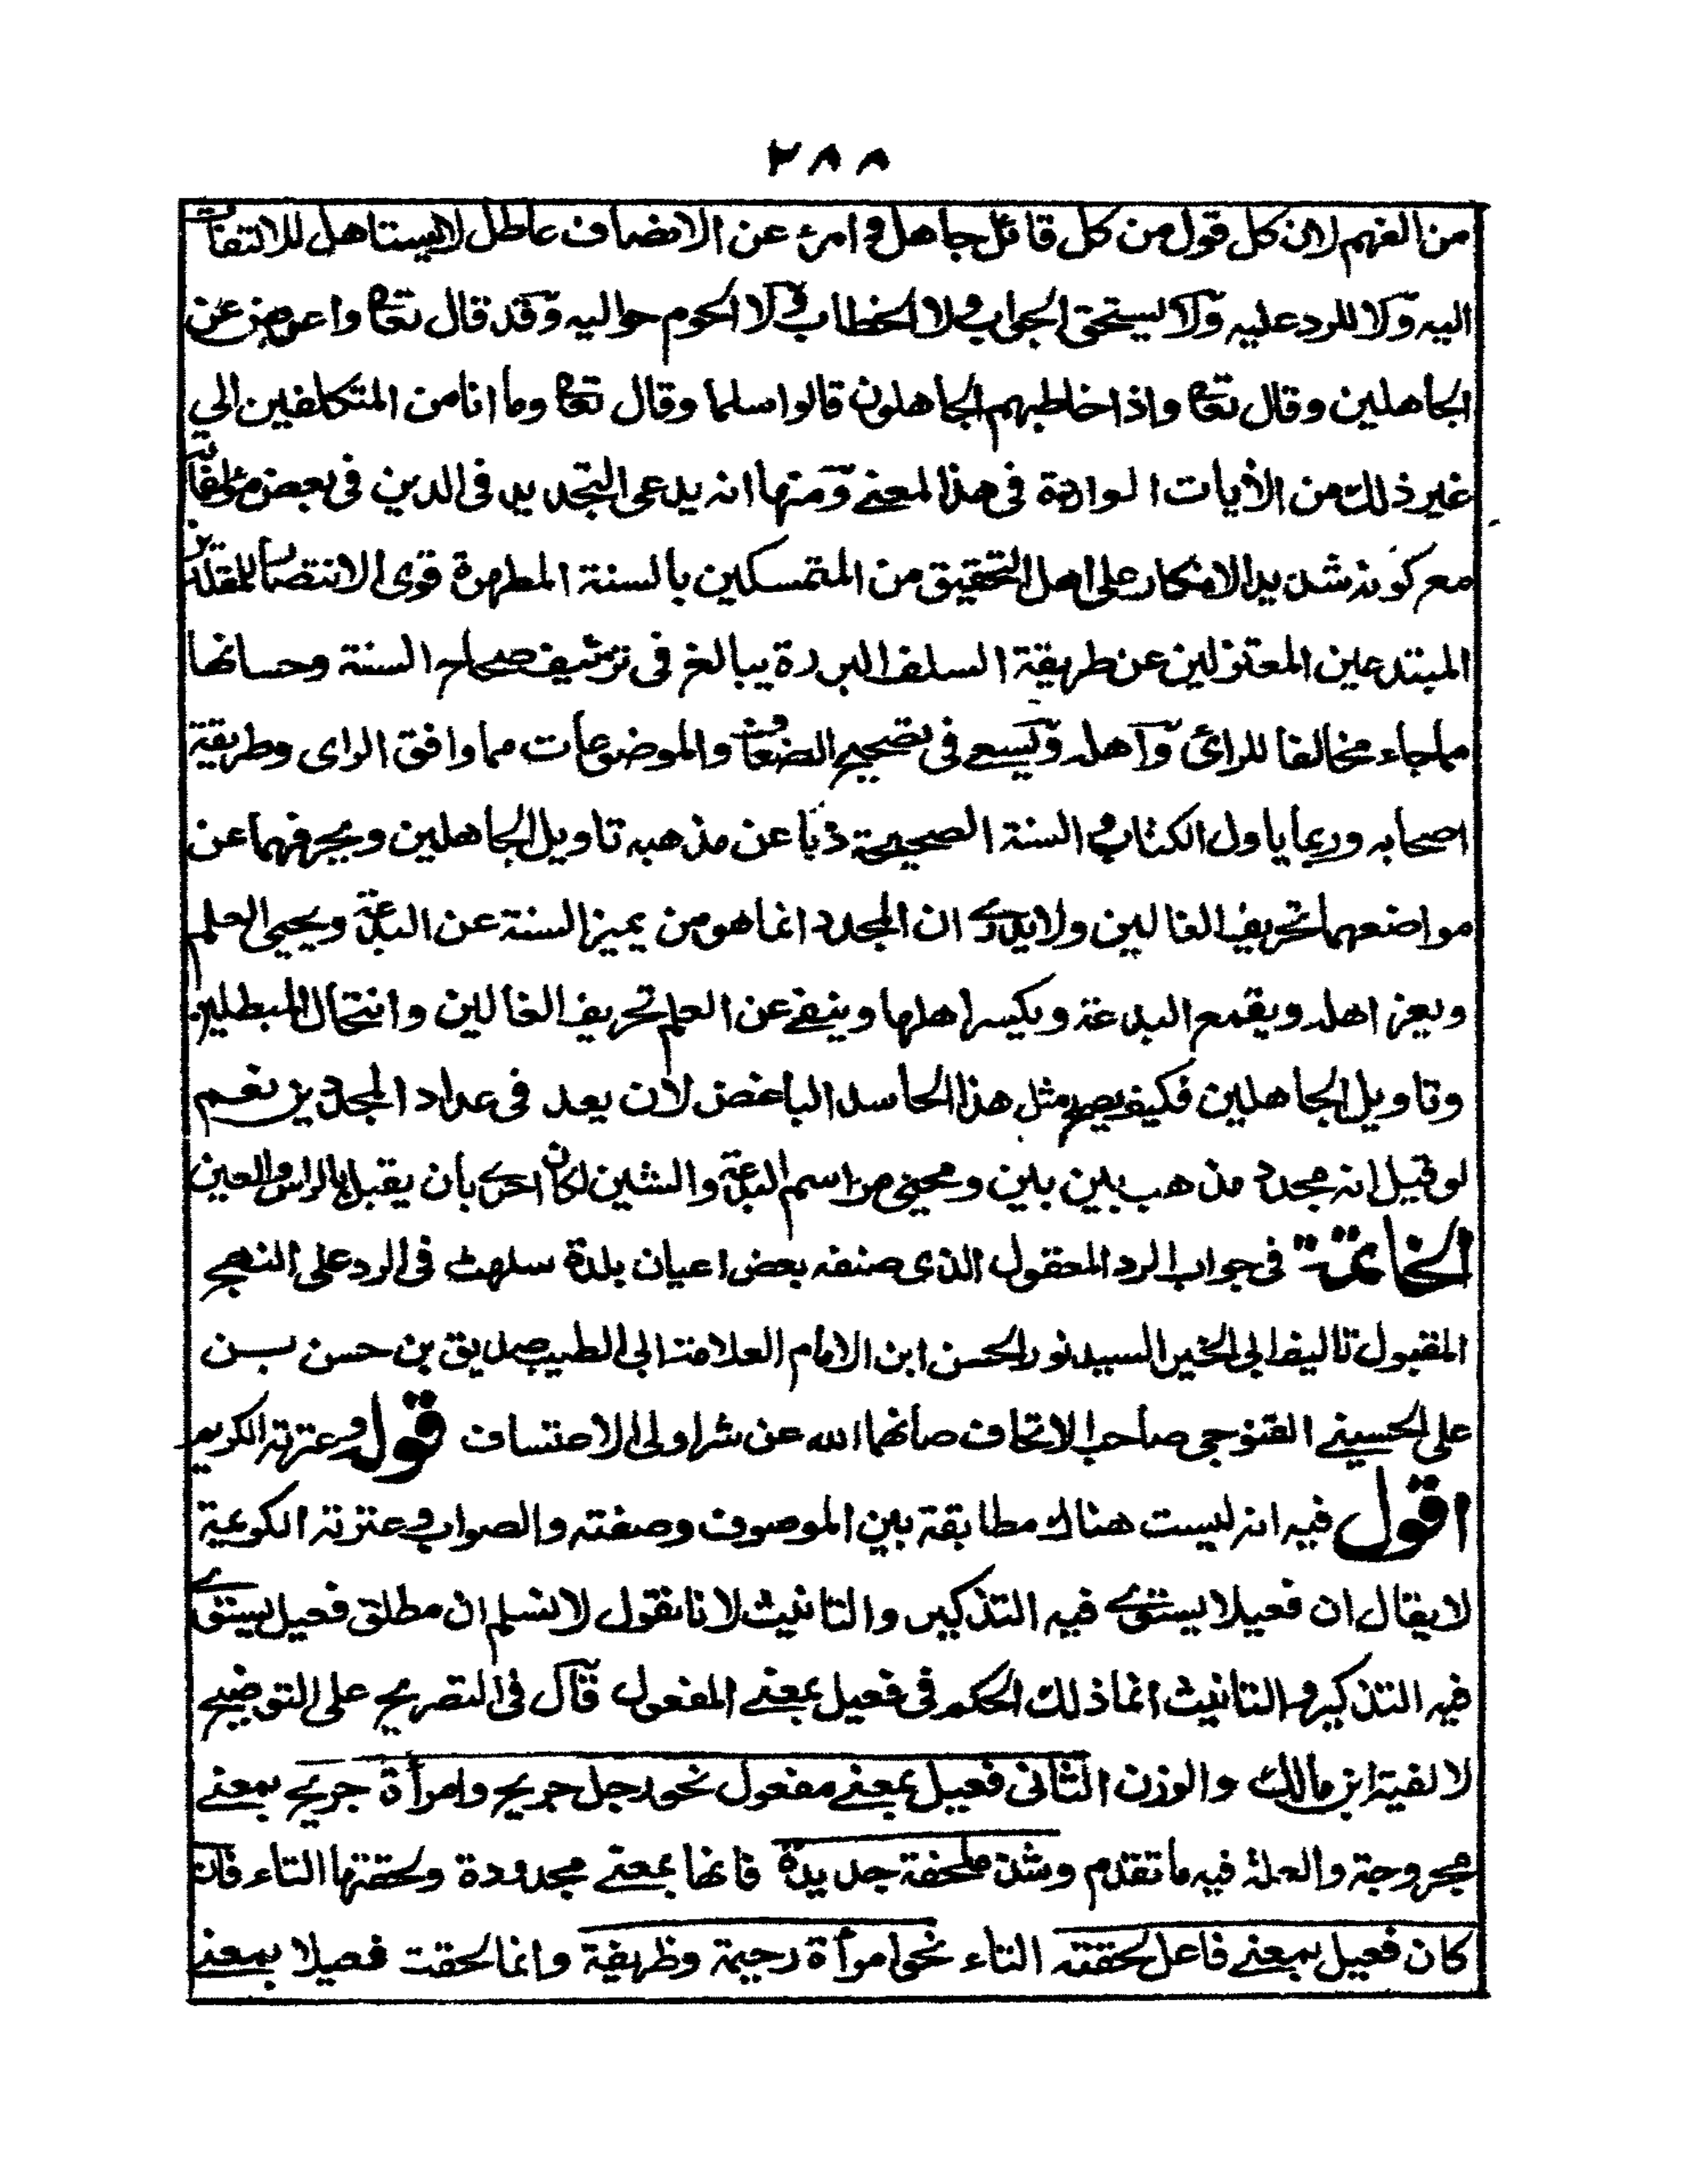 ٢٨٨
من الفهم لان كل قول من كل قائل جاهل و امرئ عن الانصاف عاطل لا يستاهل للالتفات
اليه ولا للرد عليه ولا يستحق الجواب ولا الخطاب ولا الحوم حواليه وقد قال تعا واعرض عن
الجاهلين وقال تعا واذا خاطبهم الجاهلون قالوا سلما وقال تعا وما انا من المتكلفين الى
غير ذلك من الأيات الواردة فى هذا المعنے ومنها انه يدعى التجديد فى الدين فى بعض مؤلفاته
مع كونه شديد الانكار على اهل التحقيق من المتمسكين بالسنة المطهرة قوى الانتصار للمقلدين
المبتدعين المعتزلين عن طريقة السلف البررة يبالغ فى تزئيف صحاح السنة وحسانها
مما جاء مخالفا للرائ وآهله ويسعے فى تصحيح الضعاف والموضوعات مما وافق الراى وطريقة
اصحابه وربما ياول الكتاب والسنة الصحيحة ذبا عن مذهبه تاويل الجاهلين ويحرفهما عن
مواضعهما تحريف الغالين ولا يدرے ان المجدد انما هو من يميز السنة عن البدعة ويحيى العلم
ويعز اهله ويقمع البدعة ويكسر اهلها وينفے عن العلم تحريف الغالين وانتحال المبطلين
وتاويل الجاهلين فكيف يصح مثل هذا الحاسد الباغض لأن يعد فى عداد المجددين نعم
لو قيل انه مجدد مذهب بين بين ومحيى مراسم البدعة والشين لكان احرے بأن يقبل بالراس والعين
الخاتمة فى جواب الرد المعقول الذى صنفه بعض اعيان بلدة سلهٹ فى الرد على النهج
المقبول تاليف ابى الخير السيد نور الحسن ابن الامام العلامة ابى الطيب صديق بن حسن بن
على الحسينے القنوجى صاحب الاتحاف صانهما الله عن شر اولى الاعتساف قوله وعترته الكريم
اقول فيه انه ليست هناك مطابقة بين الموصوف وصفته والصواب وعترته الكريمة
لا يقال ان فعيلا يستوے فيه التذكير والتانيث لانا نقول لا نسلم ان مطلق فعيل يستوے
فيه التذكير والتانيث انما ذلك الحكم فى فعيل بمعنے المفعول قال فى التصريح على التوضيح
لالفية ابن مالك والوزن الثانى فعيل بمعنے مفعول نحو رجل جريح وامرأة جريح بمعنے
مجروحة والعلة فيه ما تقدم وشذ ملحفة جديدة فانها بمعنے مجدودة ولحقتها التاء فان
كان فعيل بمعنے فاعل لحقته التاء نحو امرأة رحيمة وظريفة وانما لحقت فعيلا بمعنے